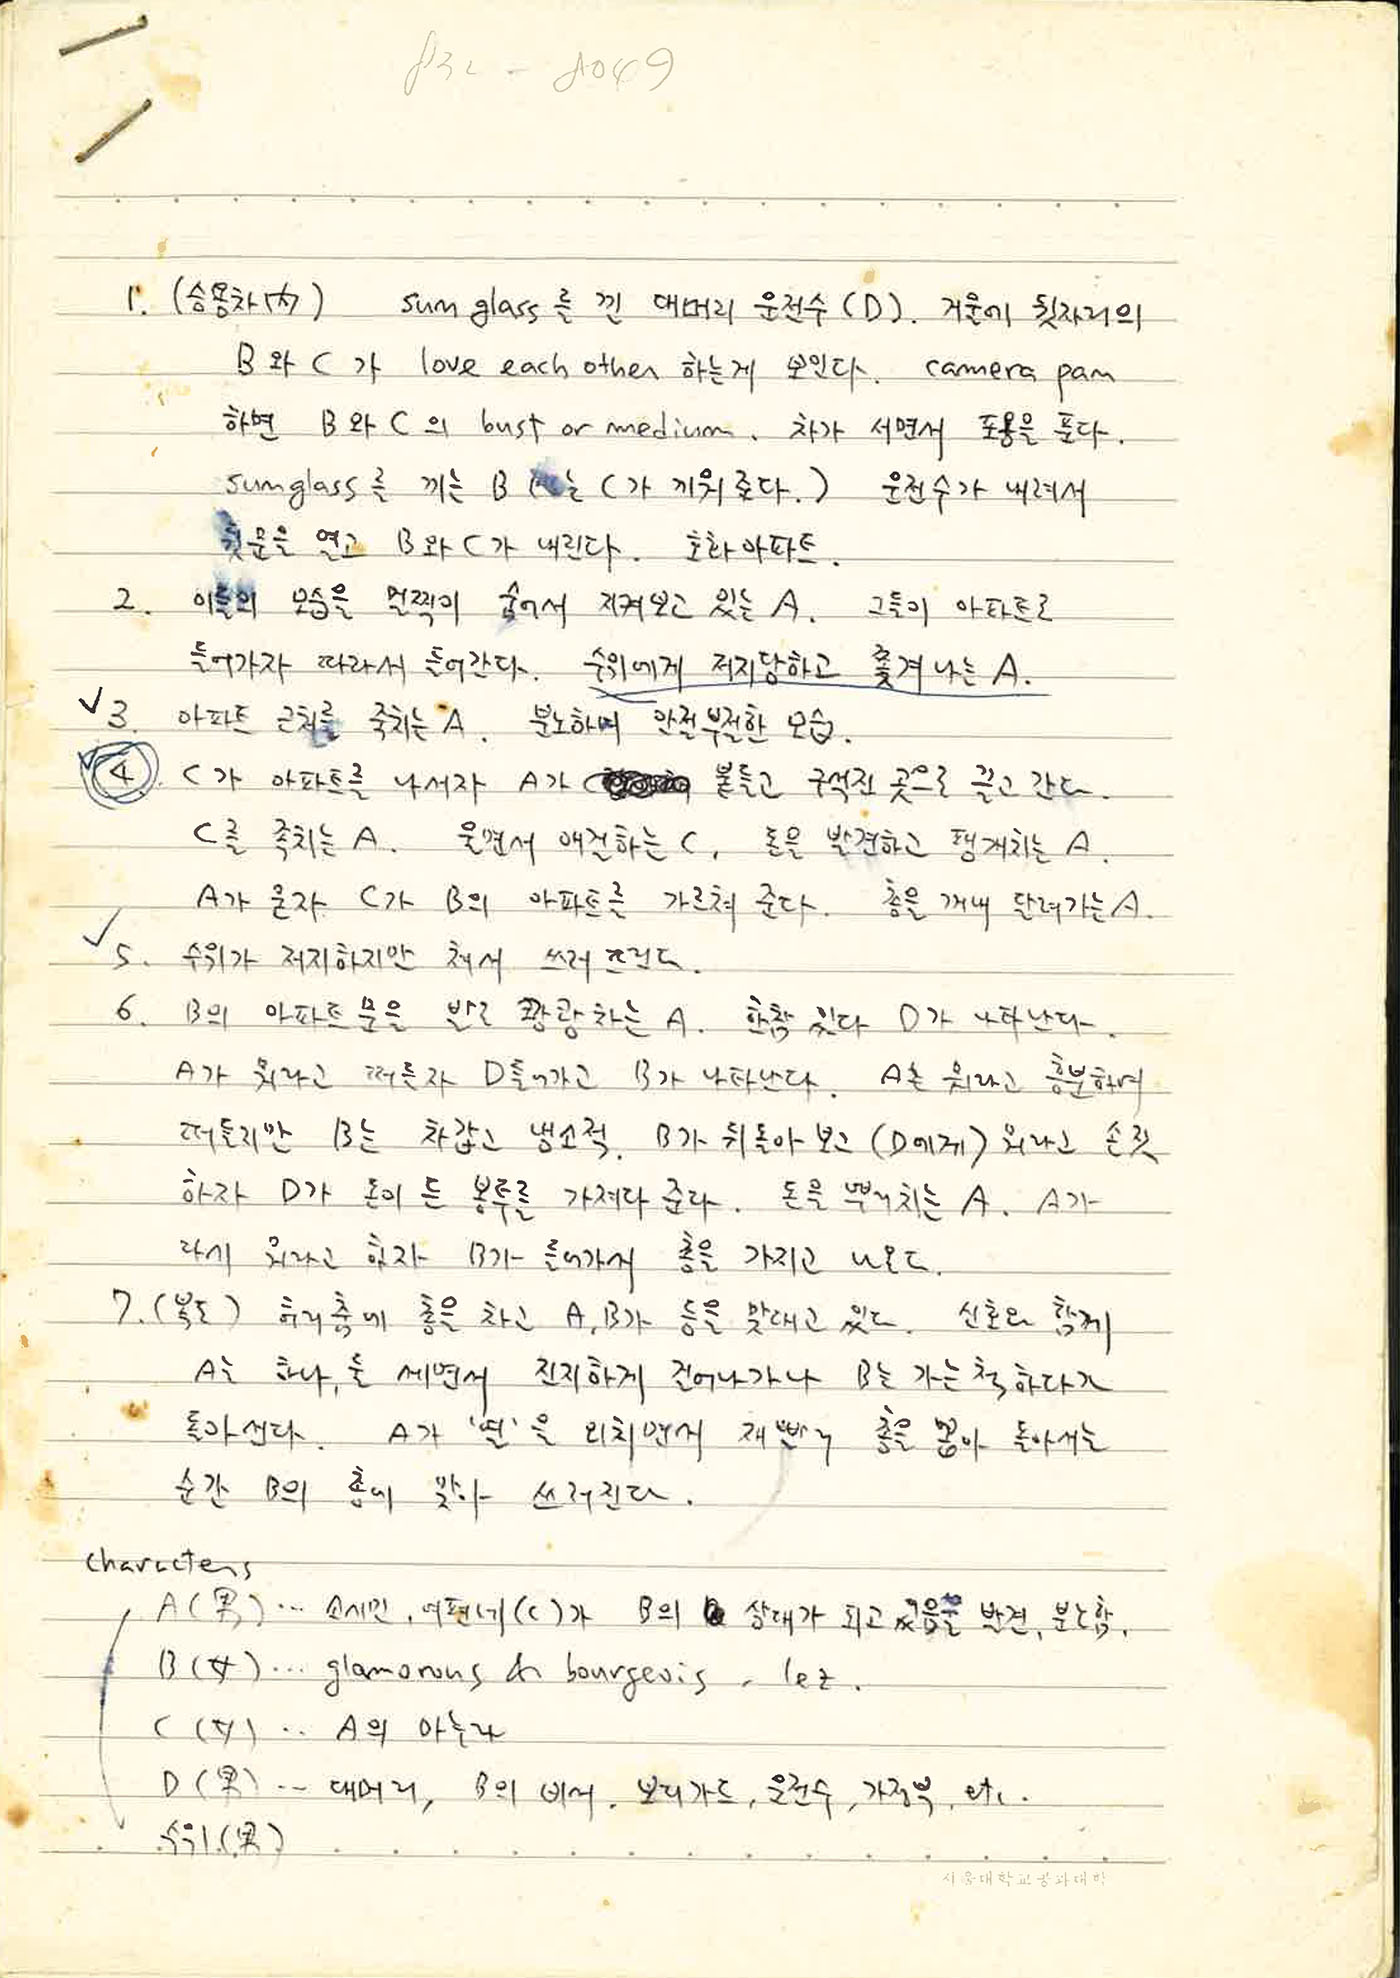 1. (승용차 內) sunglass를 낀 대머리 운전수(D). 거울에 뒷자리의
B와 C가 love each other 하는게 보인다. camera pan
하면 B와 C의 bust or medium. 차가 서면서 포옹을 푼다.
sunglass를 끼는 B ( 는 C가 끼워준다.) 운전수가 내려서
뒷문을 열고 B와 C가 내린다. 호화아파트.
2. 이들의 모습을 멀찍이 숨어서 지켜보고 있는 A. 그들이 아파트로
들어가자 따라서 들어간다. 수위에게 저지당하고 쫓겨나는 A.
3. 아파트 근처를 죽치는 A. 분노하며 안절부절한 모습.
4. C가 아파트를 나서자 A가 붙들고 구석진 곳으로 끌고 간다.
C를 족치는 A. 울면서 애걸하는 C. 돈을 발견하고 팽개치는 A.
A가 묻자 C가 B의 아파트를 가르쳐 준다. 총을 꺼내 달려가는 A.
5. 수위가 저지하지만 쳐서 쓰러뜨린다.
6. B의 아파트 문을 발로 쾅쾅 차는 A. 한참 있다 D가 나타난다.
A가 뭐라고 떠들자 D 들어가고 B가 나타난다. A는 뭐라고 흥분하며
떠들지만 B는 차갑고 냉소적. B가 뒤돌아 보고 (D에게) 뭐라고 손짓
하자 D가 돈이 든 봉투를 가져다 준다. 돈을 뿌리치는 A. A가
다시 뭐라고 하자 B가 들어가서 총을 가지고 나온다.
7. (복도) 허리춤에 총을 차고 A, B가 등을 맞대고 있다. 신호와 함께
A는 하나, 둘 세면서 진지하게 걸어나가나 B는 가는 척 하다가
돌아선다. A가 '열'을 외치면서 재빨리 총을 뽑아 돌아서는
순간 B의 총에 맞아 쓰러진다.
characters
A (男) ... 소시민, 여편네(C)가 B의 상대가 되고 있음을 발견, 분노함.
B (女) ... glamorous & bourgeois, lez.
C (女) .. A의 마누라
D (男) ... 대머리, B의 비서, 보디가드, 운전수, 가정부, etc.
수위 (男)
서울대학교공과대학